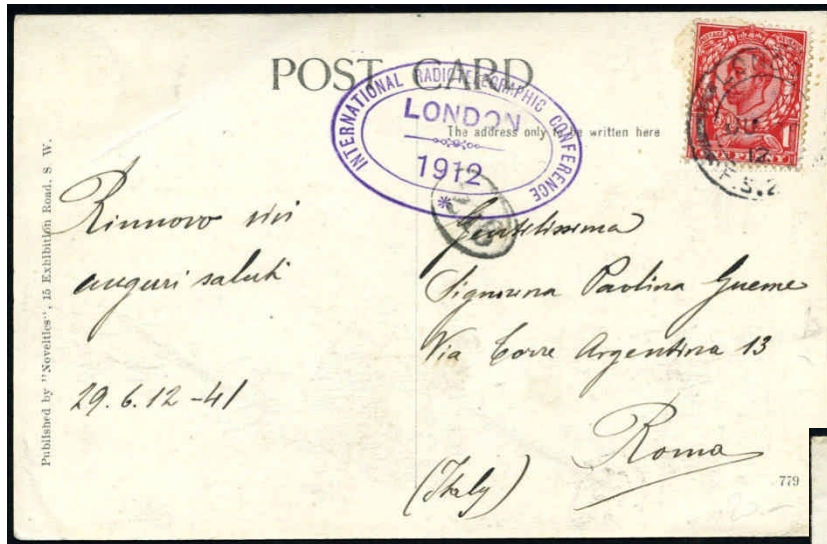 POST CARD
INTERNATIONAL RADIOTELEGRAPHIC CONFERENCE
LONDON
1912
The address only to be written here
Published by "Novelties", 15 Exhibition Road, S W.
Rinnovo vivi
auguri saluti
29.6.12 -41
Gentilissima
Signorina Paolina Gueme
Via Torre Argentina 13
Roma
(Italy)
779
LON
JU
12
F.S.2